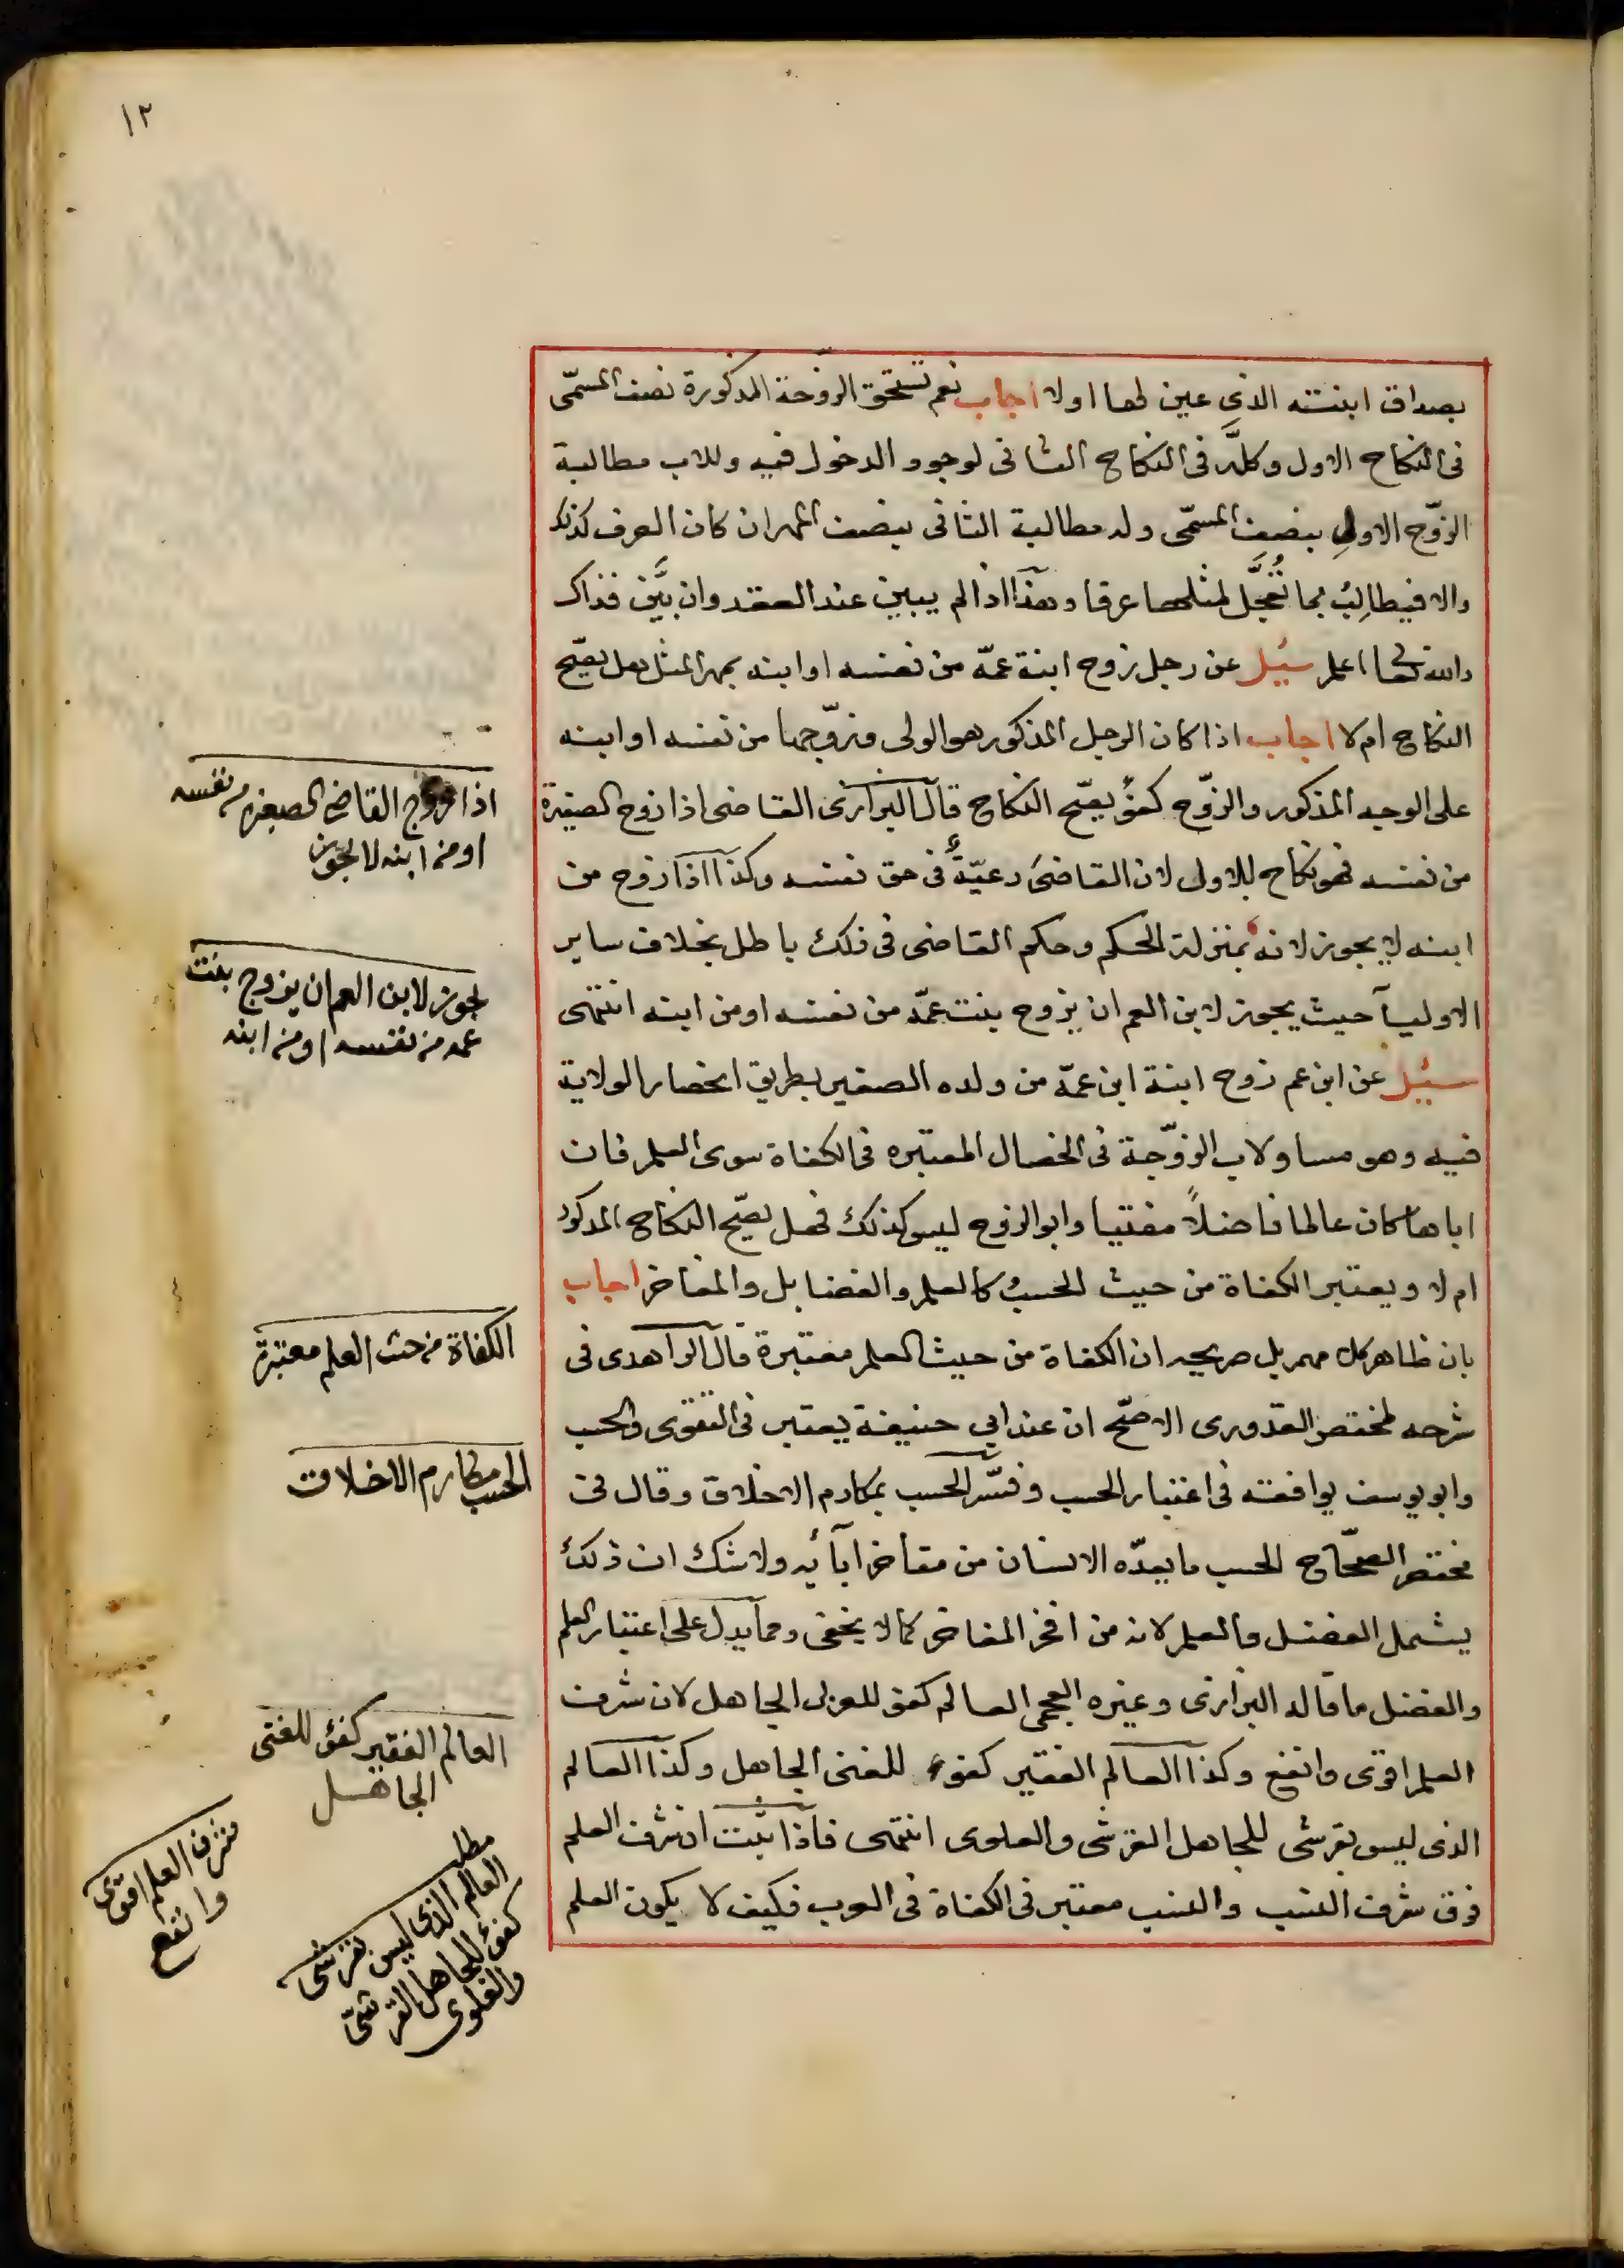 ١٢
بصداق ابنته الذى عين لها اولا اجاب نعم تستحق الزوّجة المذكورة نصف المسمّى
فى النكاح الاول وكلَّه فى النكاح الثانى لوجود الدخول فيه وللاب مطالبة
الزوّج الاول بنصف المسمّى وله مطالبة الثانى بنصف المهر ان كان العرف كذلك
والا فيطالِبُ بما تُعُجِّل لمثلها عرفا وهذا اذا لم يبين عند العقد وان بيَّن فذاك
والله تعا اعلم سئيل عن رجل زوج ابنة عمّه من نفسه او ابنه بمهر المثل هل يصّح
النكاح ام لا اجاب اذا كان الرجل المذكور هو الولى وزوّجها من نفسه او ابنه
على الوجه المذكور والزوّج كفؤ يصّح النكاح قال البزازى القاضى اذا زوج الصغيرة
من نفسه فهو نكاح بلا ولى لان القاضىَ رعيّةٌ فى حق نفسه وكذا اذا زوج من
ابنه لا يجوز لانه بمنزلة الحكم وحكم القاضى فى ذلك باطل بخلاف ساير
الاوليآ حيث يجوز لابن العم ان يزوج بنت عمّه من نفسه او من ابنه انتهى
سئيل عن ابن عم زوج ابنة ابن عمّه من ولده الصغير بطريق انحصار الولاية
فيه وهو مساو لاب الزوّجة فى الخصال المعتبره فى الكفاة سوى العلم فان
اباها كان عالما فاضلاً مفتيا وابو الزوج ليس كذلك فهل يصّح النكاح المذكور
ام لا ويعتبر الكفاة من حيث الحسب كالعلم والفضايل والمفاخر اجاب
بان ظاهر كلامهم بل صريحه ان الكفاة من حيث العلم معتبرة قال الزاهدى فى
شرحه لمختصر القدورى الاصّح ان عند ابي حنيفة يعتبر فى التقوى والحسب
وابو يوسف يوافقه فى اعتبار الحسب وفسّر الحسب بمكارم الاخلاق وقال فى
مختصر الصحّاح الحسب ما يعدّه الانسان من مفاخر ابآئه ولا شك ان ذلك
يشمل الفضل والعلم لانه من افخر المفاخر كما لا يخفى ومما يدل على اعتبار العلم
والفضل ما قاله البزازى وغيره العجمى العالم كفؤ للعربى الجاهل لان شرف
العلم اقوى وانفع وكذا العالم الفقير كفوء للغنى الجاهل وكذا العالم
الذى ليس بقرشى للجاهل القرشى والعلوى انتهى فاذا ثبت ان شرف العلم
فوق شرف النسب والنسب معتبر فى الكفاة فى العرب فكيف لا يكون العلم
اذا زوج القاضى الصغيره من نفسه
او من ابنه لا يجوز
يجوز لابن العم ان يزوج بنت
عمه من نفسه او من ابنه
الكفاة من حيث العلم معتبرة
الحسب مكارم الاخلاق
العالم الفقير كفؤ للغنى
الجاهل
شرف العلم اقوى
وانفع
مطلب
العالم الذى ليس بقرشى
كفؤ للجاهل القرشىّ
والعلوى